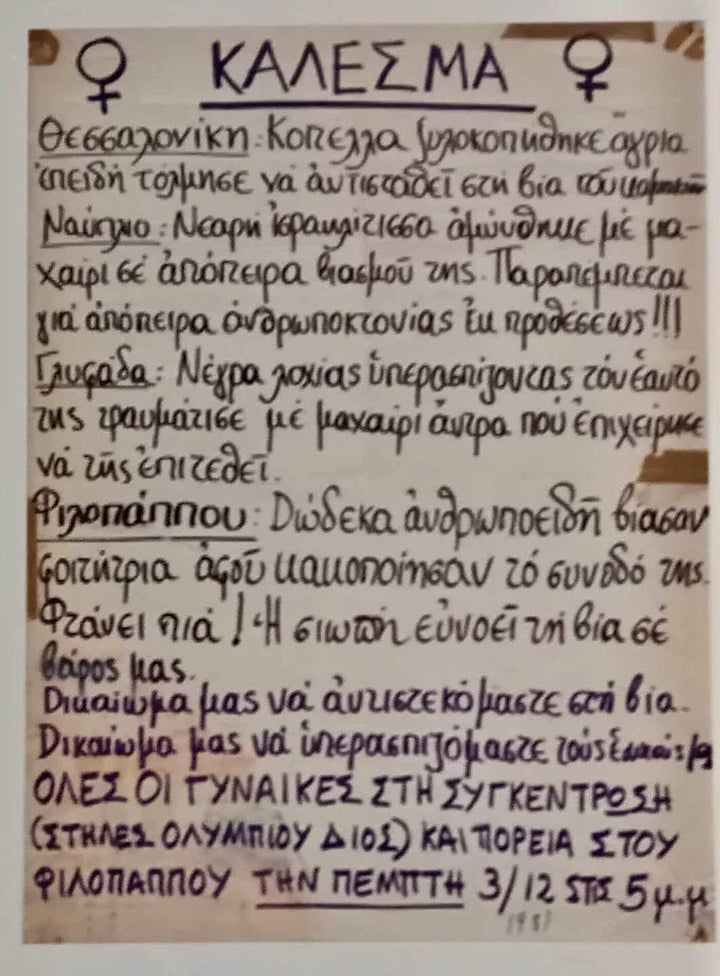 ♀ ΚΑΛΕΣΜΑ ♀
Θεσσαλονίκη: Κοπελλα ξυλοκοπήθηκε ἄγρια
ἐπειδή τόλμησε νά ἀντισταθεῖ στή βία τοῦ
Ναύπλιο: Νεαρή ἰσραηλίτισσα ἀμύνθηκε μέ μα-
χαίρι σέ ἀπόπειρα βιασμοῦ της. Παραπέμπεται
γιά ἀπόπειρα ἀνθρωποκτονίας ἐκ προθέσεως!!!
Γλυφάδα: Νέγρα λοχίας ὑπερασπίζοντας τόν ἑαυτό
της τραυμάτισε μέ μαχαίρι ἄντρα πού ἐπιχείρησε
νά τῆς ἐπιτεθεῖ.
Φιλοπάππου: Δώδεκα ἀνθρωποειδῆ βίασαν
φοιτήτρια ἀφοῦ κακοποίησαν τό συνοδό της.
Φτάνει πιά! Ἡ σιωπή εὐνοεῖ τή βία σέ
βάρος μας.
Δικαίωμα μας νά ἀντιστεκόμαστε στή βία.
Δικαίωμα μας νά ὑπερασπιζόμαστε τούς
ΟΛΕΣ ΟΙ ΓΥΝΑΙΚΕΣ ΣΤΗ ΣΥΓΚΕΝΤΡΩΣΗ
(ΣΤΗΛΕΣ ΟΛΥΜΠΙΟΥ ΔΙΟΣ) ΚΑΙ ΠΟΡΕΙΑ ΣΤΟΥ
ΦΙΛΟΠΑΠΠΟΥ ΤΗΝ ΠΕΜΠΤΗ 3/12 ΣΤΙΣ 5 μ.μ
1981